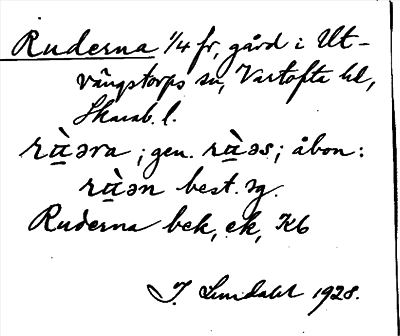 Ruderna 1/4 fr, gård i Ut-
vängstorps sn, Vartofta hd,
Skarab. l.
rù̱əra ; gen. rù̱əs ; åbon:
rù̱ən best. sg.
Ruderna bek, ek, Kb
J. Lundahl 1928.